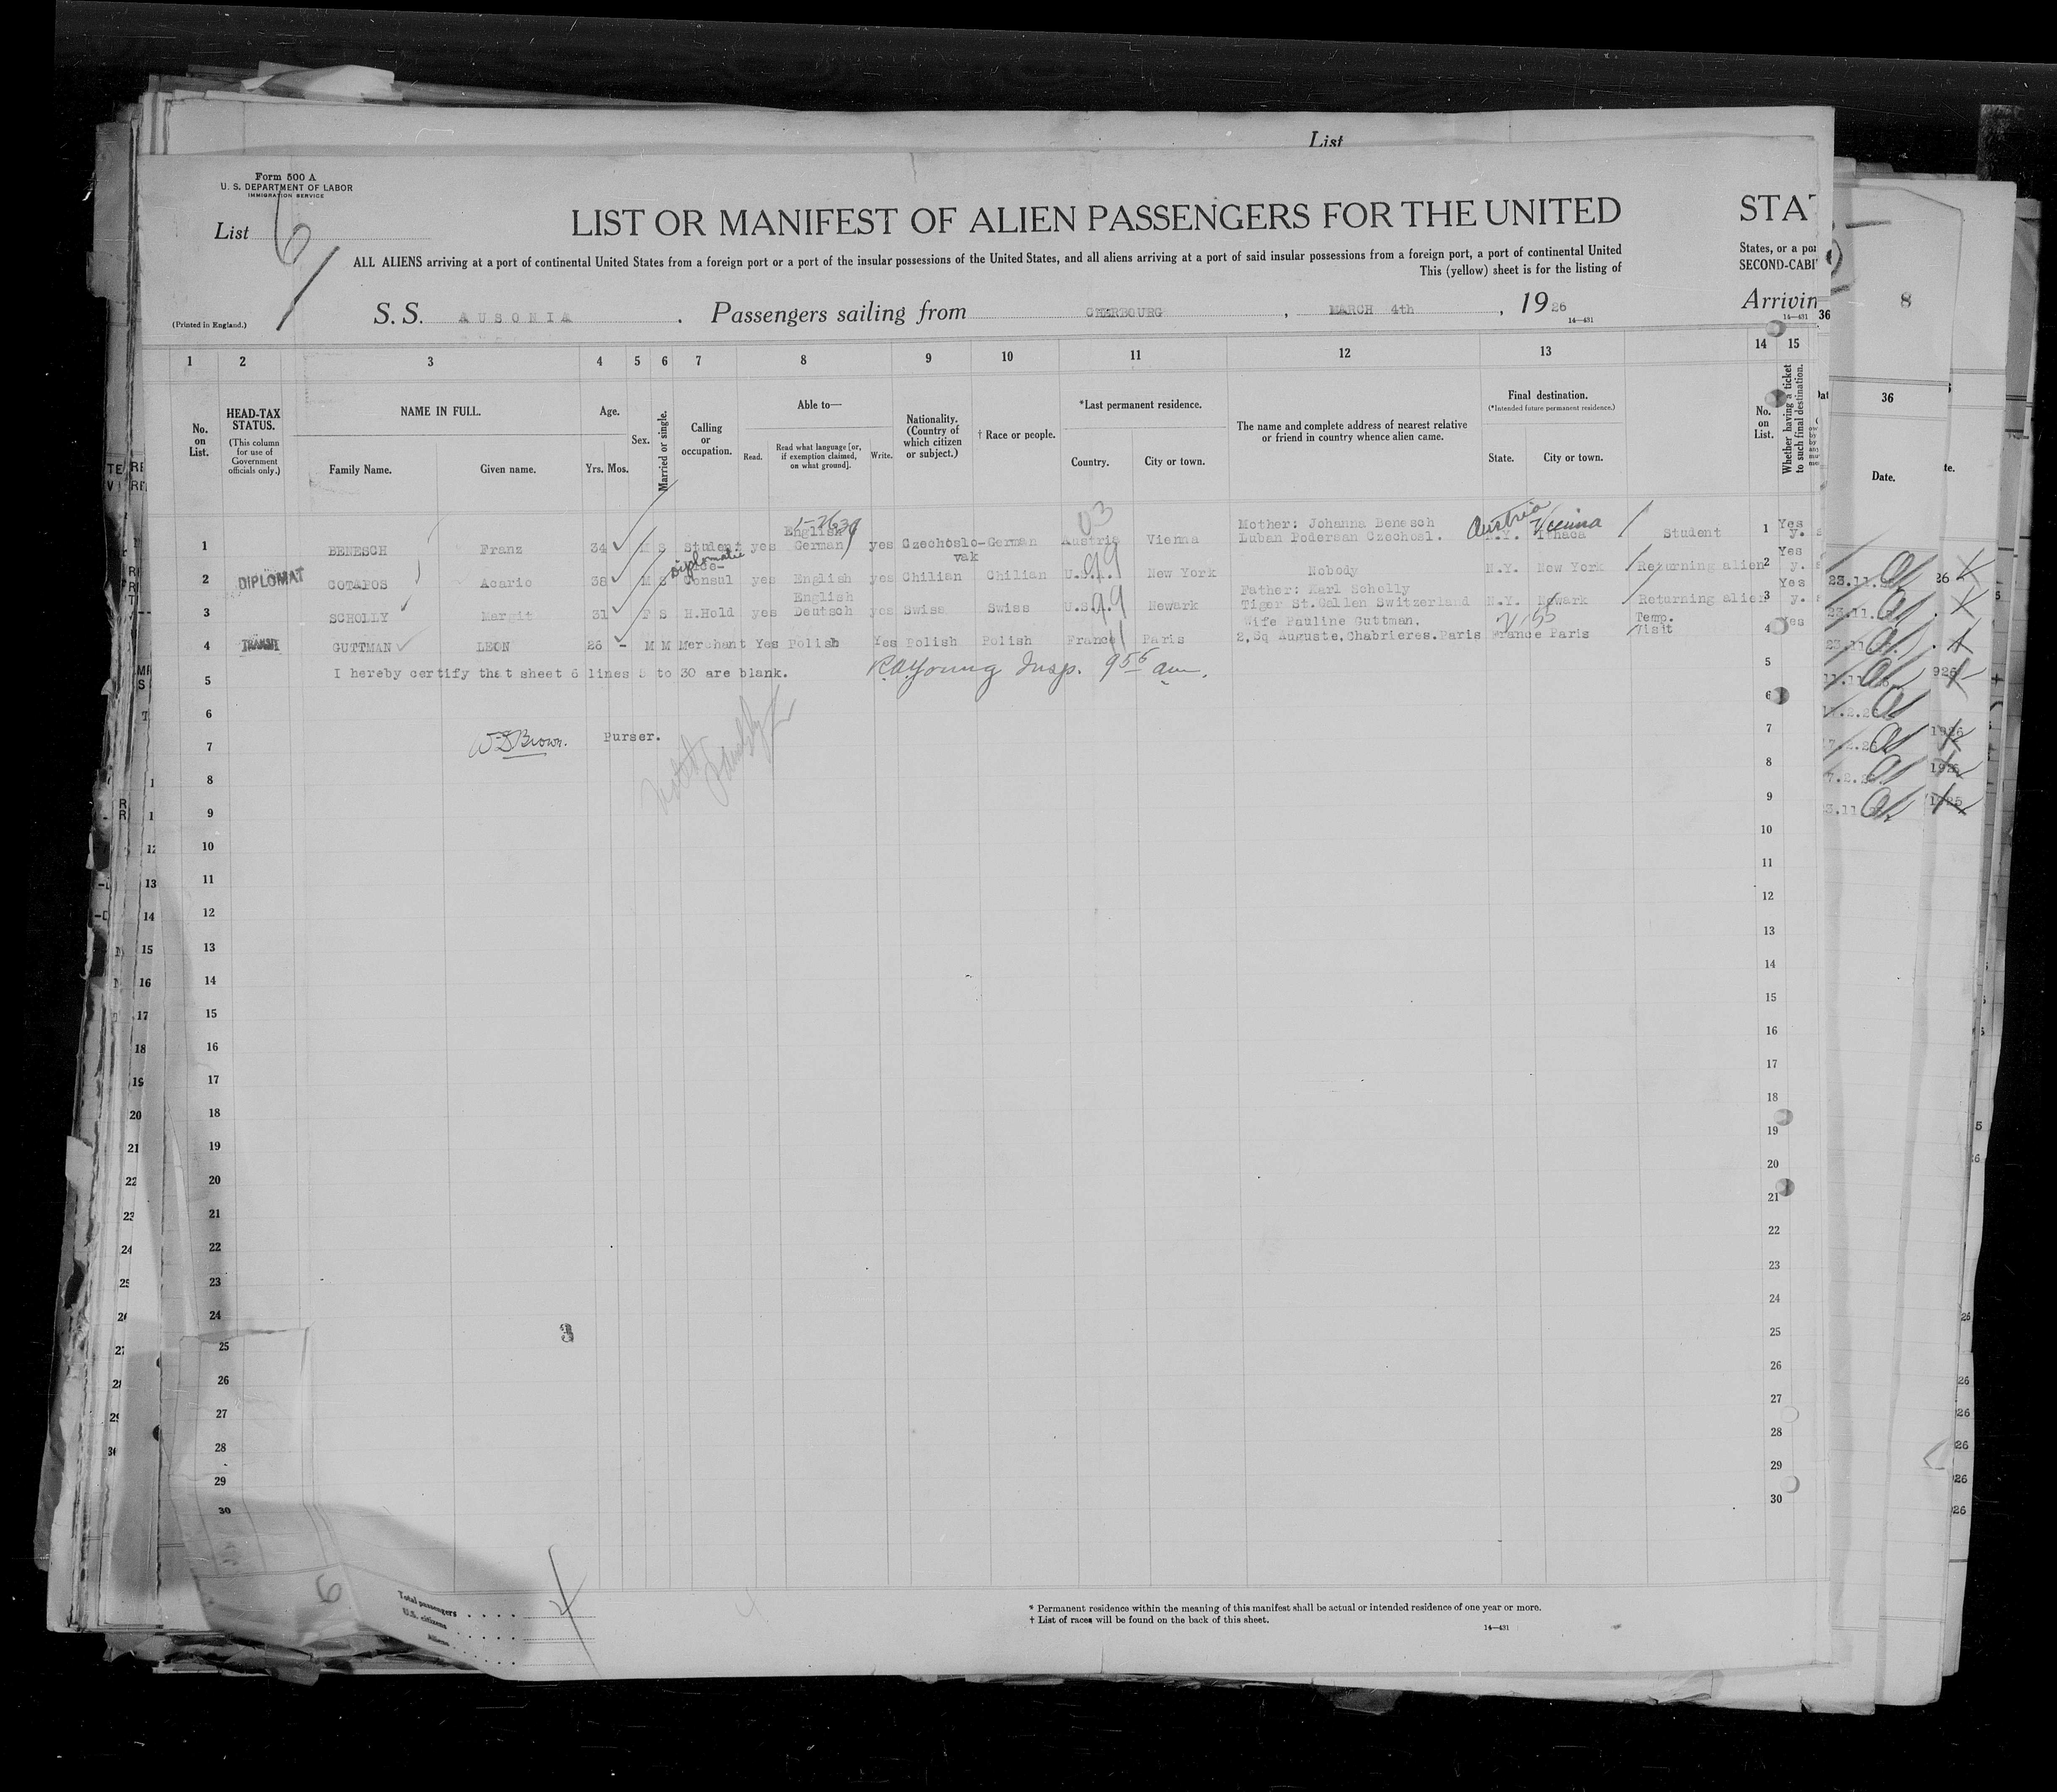 List
Form 500 A
U. S. DEPARTMENT OF LABOR
IMMIGRATION SERVICE
List 6
LIST OR MANIFEST OF ALIEN PASSENGERS FOR THE UNITED STAT
ALL ALIENS arriving at a port of continental United States from a foreign port or a port of the insular possessions of the United States, and all aliens arriving at a port of said insular possessions from a foreign port, a port of continental United States, or a por
This (yellow) sheet is for the listing of SECOND-CABI
(Printed in England.)
S. S. AUSONIA . Passengers sailing from CHERBOURG , MARCH 4th , 1926 Arrivin
14—431
14—431 36
8
1 2 3 4 5 6 7 8 9 10 11 12 13 14 15
36
No. on List.
HEAD-TAX STATUS.
(This column for use of Government officials only.)
NAME IN FULL.
Family Name. Given name.
Age.
Yrs. Mos.
Sex.
Married or single.
Calling or occupation.
Able to—
Read. Read what language [or, if exemption claimed, on what ground]. Write.
Nationality. (Country of which citizen or subject.)
† Race or people.
*Last permanent residence.
Country. City or town.
The name and complete address of nearest relative or friend in country whence alien came.
Final destination.
(*Intended future permanent residence.)
State. City or town.
No. on List.
Whether having a ticket to such final destination.
Date.
03 Austria Vienna
1 BENESCH Franz 34 M S Student yes English German yes Czechoslo-vak German Austria Vienna Mother: Johanna Benesch Luban Podersan Czechosl. N.Y. Ithaca Student 1 Yes y.
2 DIPLOMAT COTAPOS Acario 38 M S Diplomatic Consul yes English yes Chilian Chilian U.S.A. 99 New York Nobody N.Y. New York Returning alien 2 Yes y.
3 SCHOLLY Margit 31 F S H.Hold yes English Deutsch yes Swiss Swiss U.S.A. 99 Newark Father: Karl Scholly Tiger St.Gallen Switzerland N.Y. Newark Returning alien 3 Yes y.
4 TRANSIT GUTTMAN LEON 26 - M M Merchant Yes Polish Yes Polish Polish France 11 Paris Wife Pauline Guttman, 2,Sq Auguste,Chabrieres.Paris France Paris Temp. Visit 4 Yes
5 I hereby certify that sheet 6 lines 5 to 30 are blank. R.A. Young Insp. 9 56 am. 5
6 6
7 W S Brown. Purser. 7
8 8
9 9
10 10
11 11
12 12
13 13
14 14
15 15
16 16
17 17
18 18
19 19
20 20
21 21
22 22
23 23
24 24
3
25 25
26 26
27 27
28 28
29 29
30 30
6
Total passengers
U.S. citizens
Aliens
* Permanent residence within the meaning of this manifest shall be actual or intended residence of one year or more.
† List of races will be found on the back of this sheet.
14—431